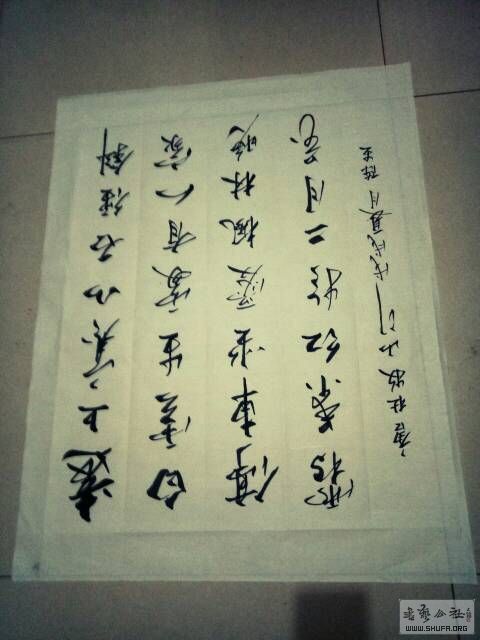 遠上寒山石徑斜
白雲生處有人家
停車坐愛楓林晚
霜葉紅於二月花
唐杜牧山行 戊戌夏月
书艺公社
WWW.SHUFA.ORG